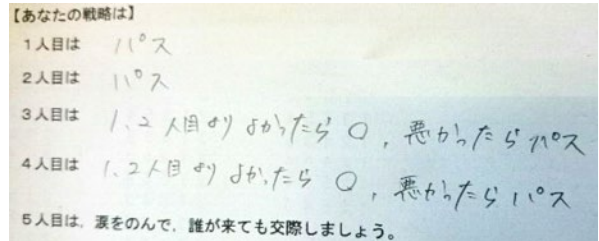 【あなたの戦略は】
1人目は パス
2人目は パス
3人目は 1、2人目よりよかったら○，悪かったらパス
4人目は 1、2人目よりよかったら○，悪かったらパス
5人目は，涙をのんで，誰が来ても交際しましょう。